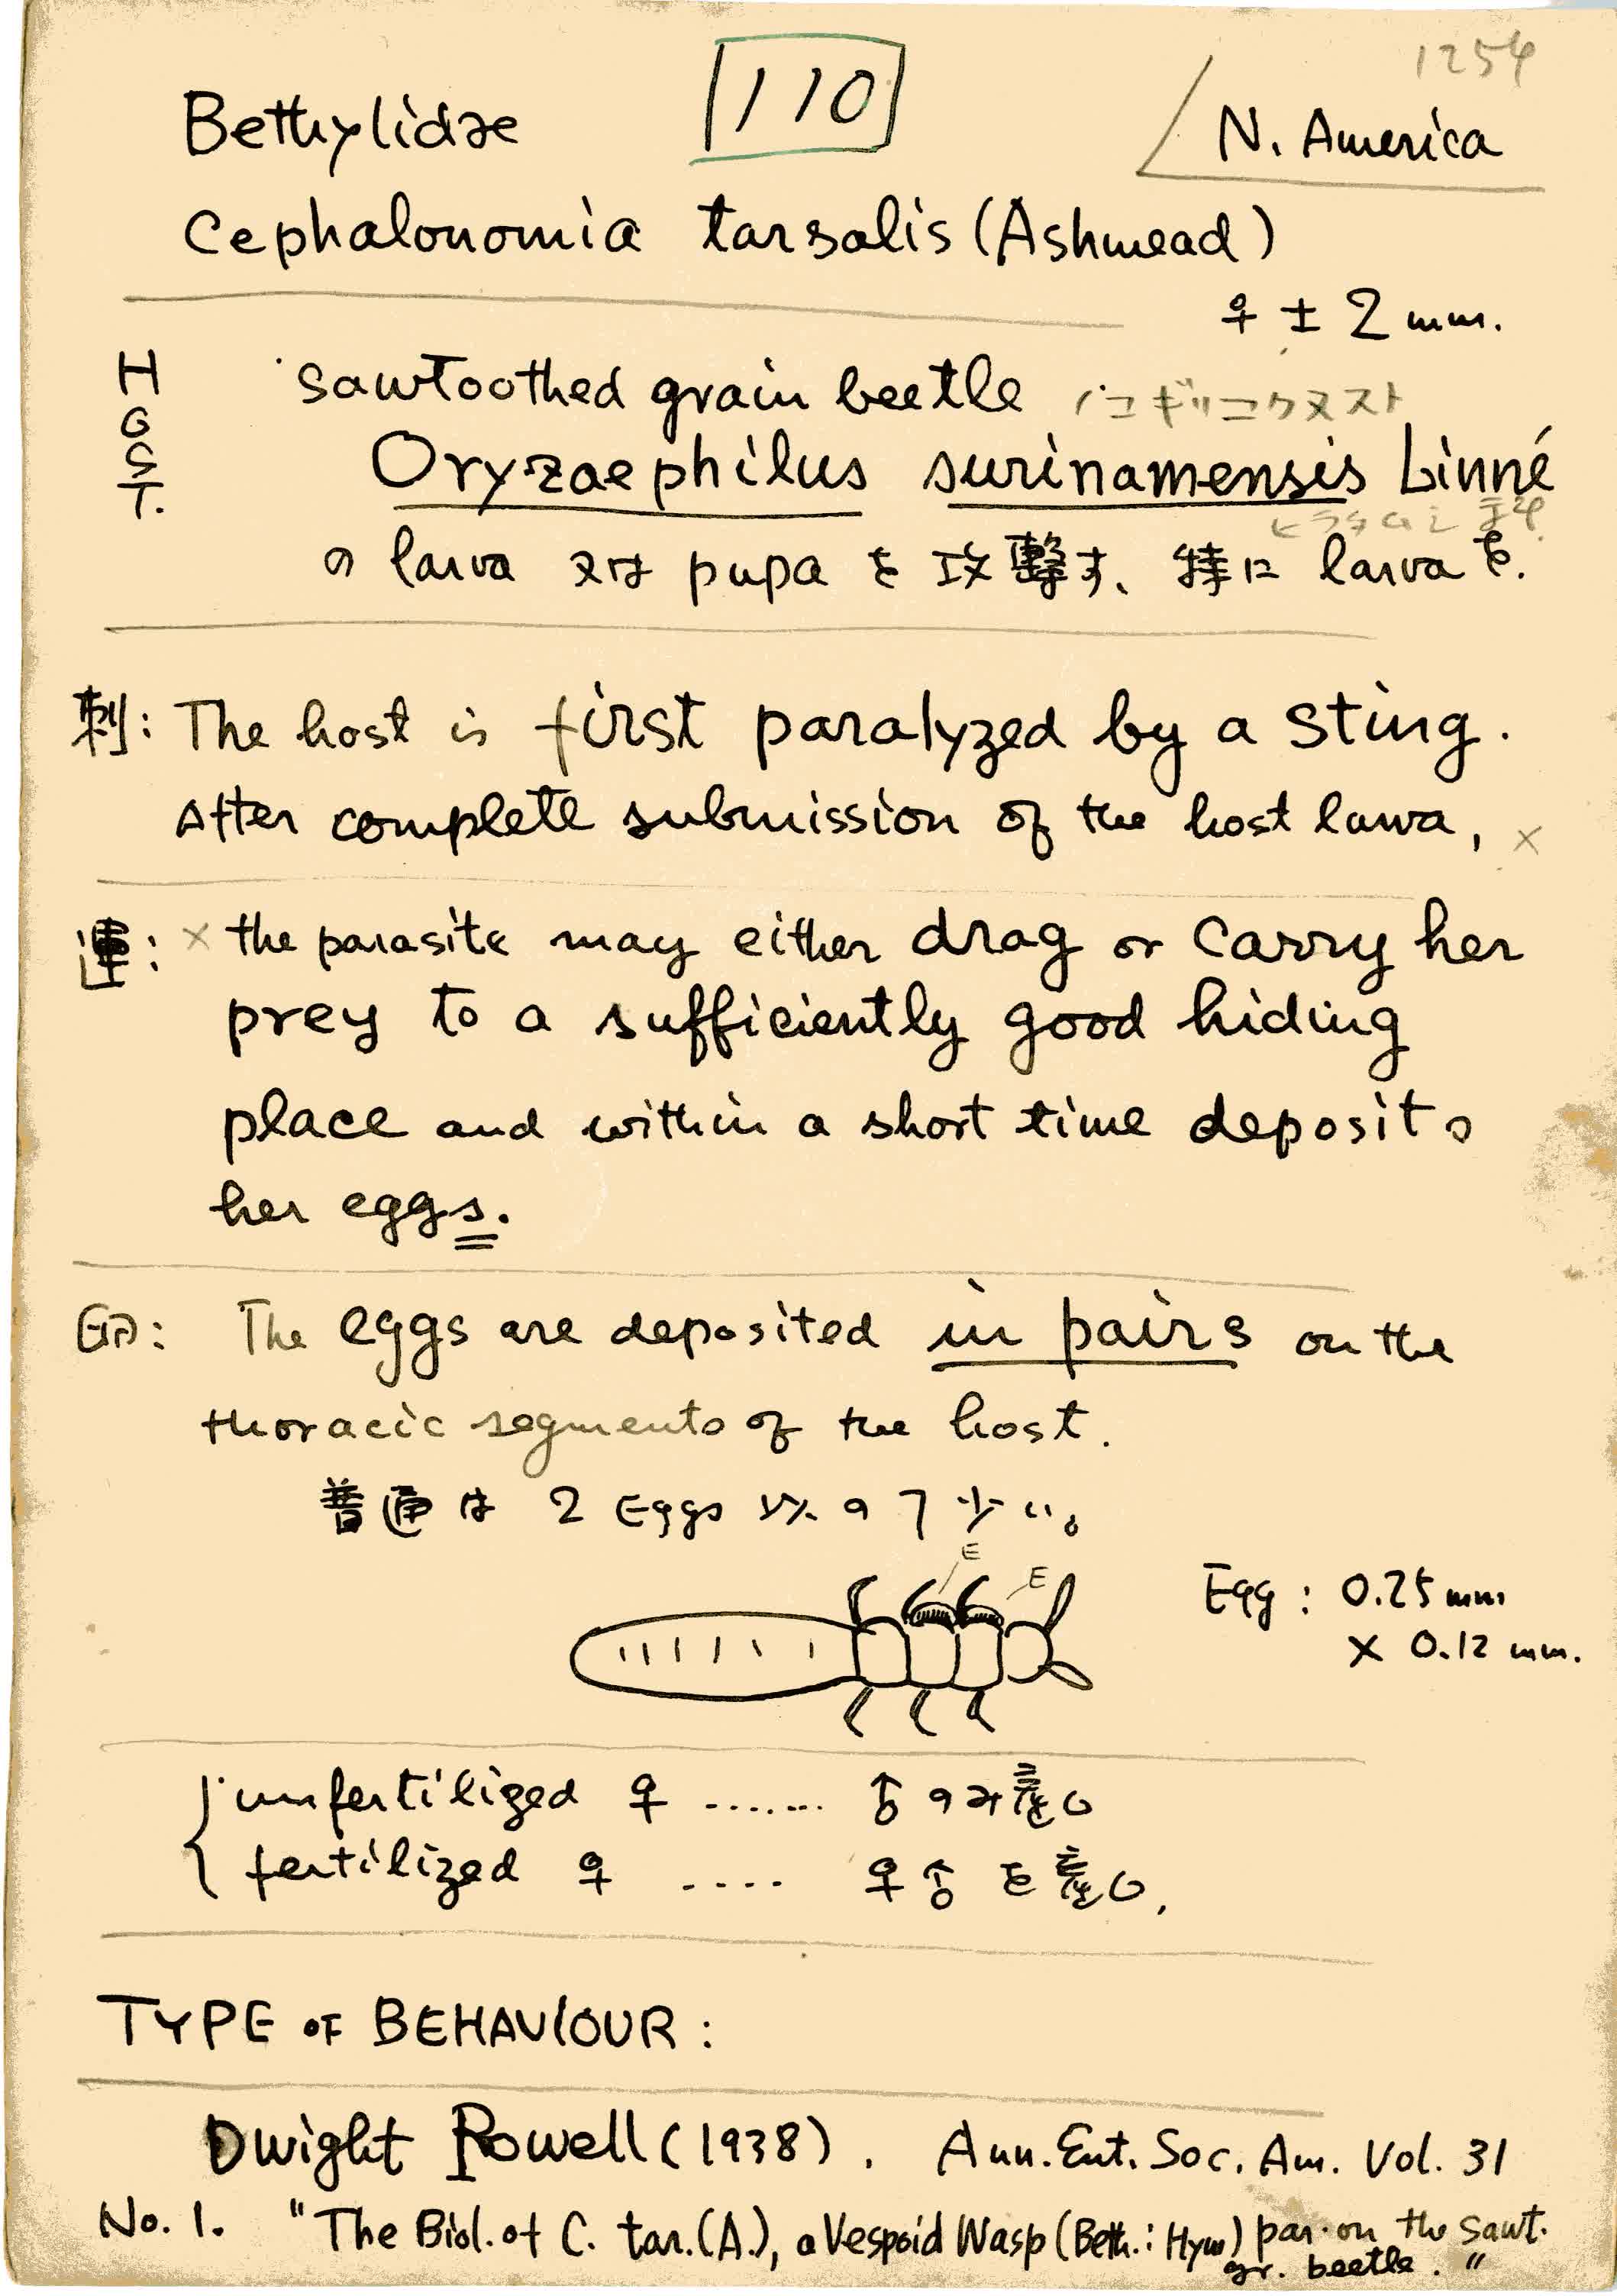 1254
110
Bethylidae
N. America
Cephalonomia tarsalis (Ashmead)
♀ ± 2 mm.
HOST.
sawtoothed grain beetle ノコギリコクヌスト
Oryzaephilus surinamensis Linné
ヒラタムシ科
の larva 又は pupa を攻撃す、特に larva を.
刺: The host is first paralyzed by a sting.
After complete submission of the host larva, ×
運: × the parasite may either drag or carry her
prey to a sufficiently good hiding
place and within a short time deposits
her eggs.
卵: The eggs are deposited in pairs on the
thoracic segments of the host.
普通は 2 Eggs
E
E
Egg : 0.25 mm
× 0.12 mm.
unfertilized ♀ ....... ♂のみ産む
fertilized ♀ .... ♀♂を産む.
TYPE OF BEHAVIOUR :
Dwight Powell (1938). Ann. Ent. Soc. Am. Vol. 31
No. 1. "The Biol. of C. tar. (A.), a Vespoid Wasp (Beth. : Hym) par. on the sawt.
gr. beetle."